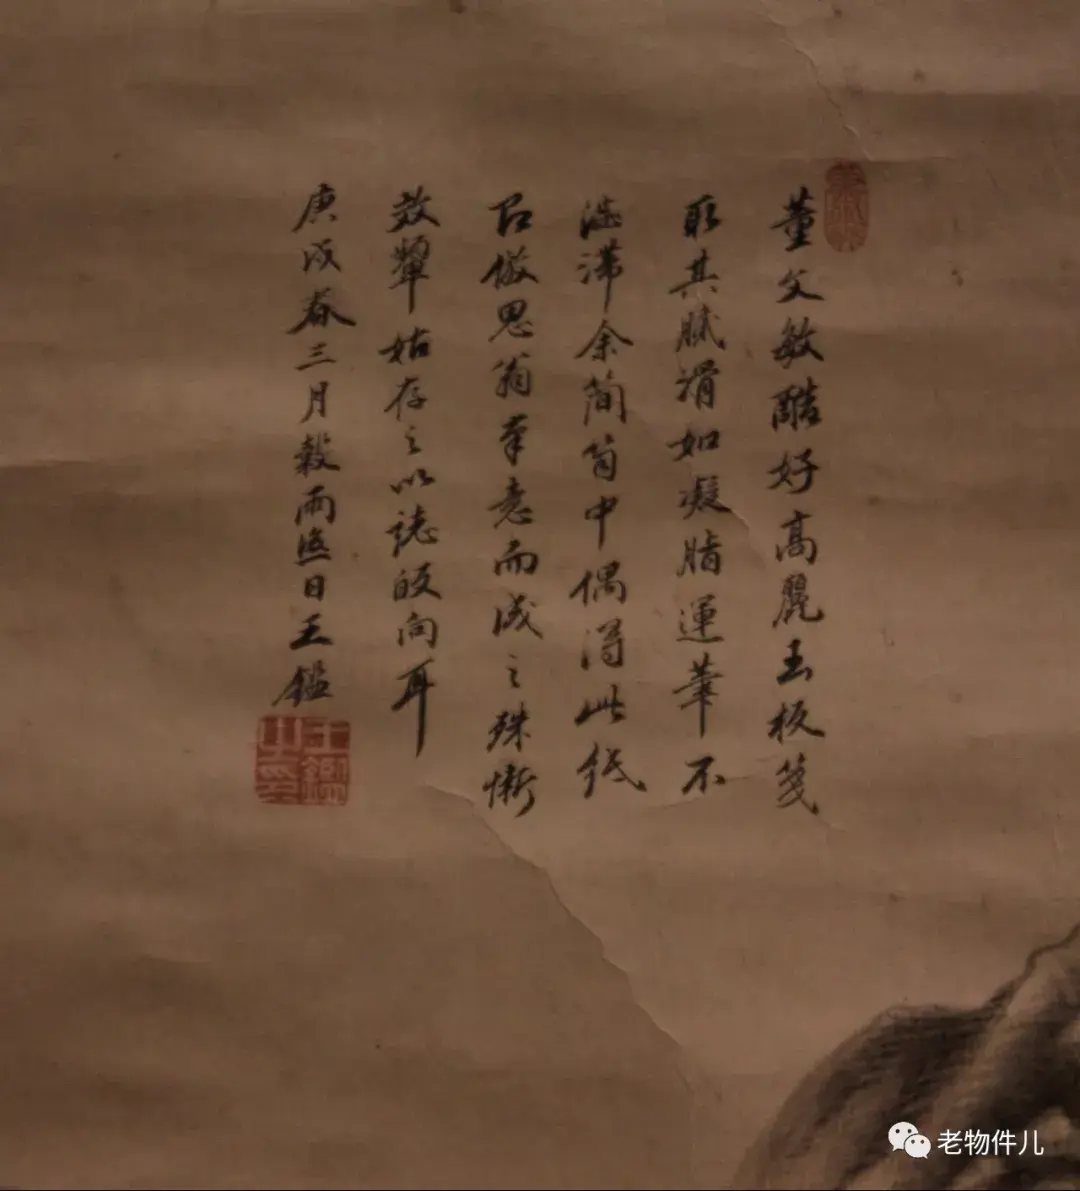 董文敏酷好高麗玉板箋
取其膩滑如凝脂運筆不
澁滯余簡笥中偶得此紙
因倣思翁筆意而成之殊慚
效顰姑存之以誌的向耳
庚戌春三月穀雨後日王鑑
王鑑之印
老物件儿